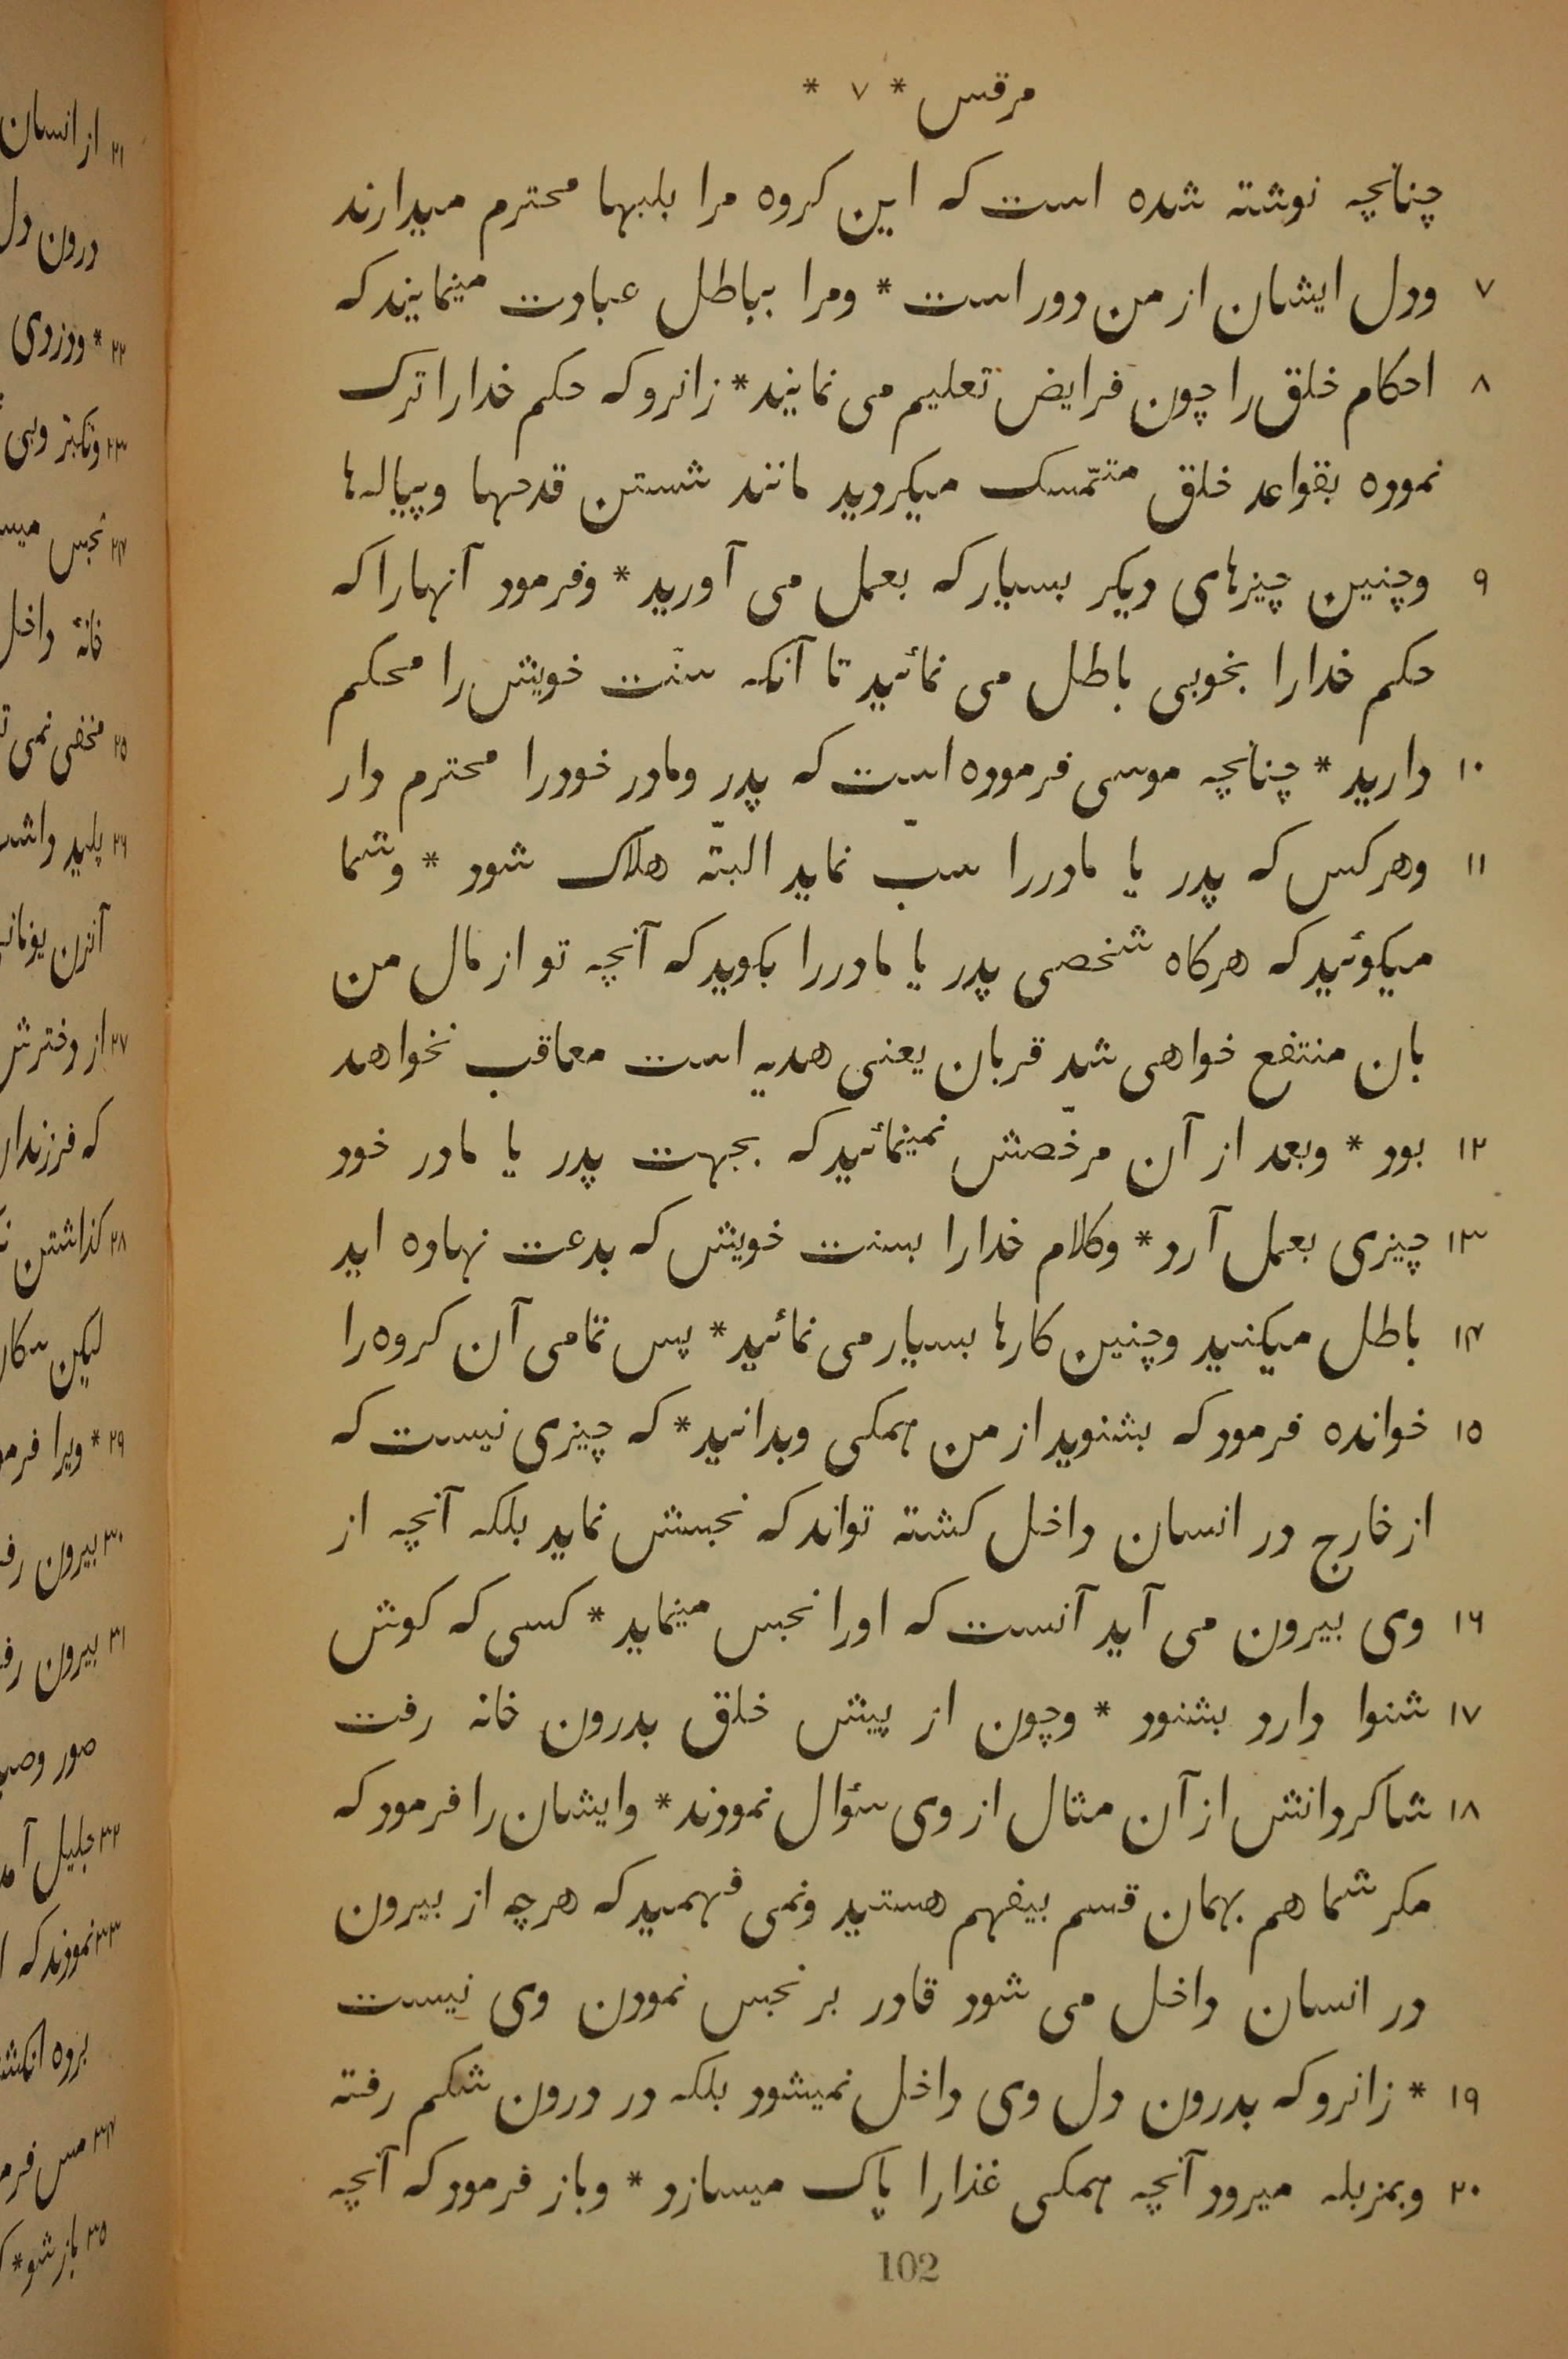 مرقس * ۷ *
چنانچه نوشته شده است که این کروه مرا بلبها محترم میدارند
۷ ودل ایشان از من دور است * ومرا بباطل عبادت مینمایند که
۸ احکام خلق را چون فرایض تعلیم می نمایند * زانرو که حکم خدارا ترک
نموده بقواعد خلق متمّسک میکردید مانند شستن قدحها وپیاله‌ها
۹ وچنین چیزهای دیکر بسیار که بعمل می آورید * وفرمود آنهارا که
حکم خدارا بخوبی باطل می نمائید تا آنکه سنّت خویش را محکم
۱۰ دارید * چنانچه موسی فرموده است که پدر ومادر خودرا محترم دار
۱۱ وهر کس که پدر یا مادررا سبّ نماید البتّه هلاک شود * وشما
میکوئید که هرکاه شخصی پدر یا مادررا بکوید که آنچه تو از مال من
بان منتفع خواهی شد قربان یعنی هدیه است معاقب نخواهد
۱۲ بود * وبعد از آن مرخّصش نمینمائید که بجهت پدر یا مادر خود
۱۳ چیزی بعمل آرد * وکلام خدارا بسنت خویش که بدعت نهاده اید
۱۴ باطل میکنید وچنین کارها بسیار می نمائید * پس تمامی آن کروه را
۱۵ خوانده فرمود که بشنوید از من همکی وبدانید * که چیزی نیست که
از خارج در انسان داخل کشته تواند که نجسش نماید بلکه آنچه از
۱۶ وی بیرون می آید آنست که اورا نجس مینماید * کسی که کوش
۱۷ شنوا دارد بشنود * وچون از پیش خلق بدرون خانه رفت
۱۸ شاکردانش از آن مثال از وی سؤال نمودند * وایشان را فرمود که
مکر شما هم بهمان قسم بیفهم هستید ونمی فهمید که هرچه از بیرون
در انسان داخل می شود قادر بر نجس نمودن وی نیست
۱۹ * زانرو که بدرون دل وی داخل نمیشود بلکه در درون شکم رفته
۲۰ وبمزبله میرود آنچه همکی غذارا پاک میسازد * وباز فرمود که آنچه
102
۲۱ از انسان
درون دل
۲۲ * ودزدی
۲۳ وتکبّر وبی
۲۴ نجس
خانهٔ داخل
۲۵ مخفی نمی
۲۶ پلید
آنزن
۲۷ از دخترش
که
۲۸ کذاشتن
لیکن
۲۹ * ویرا
۳۰ بیرون
۳۱ بیرون
صور
۳۲ جلیل
۳۳ نمودند که
برده
۳۴ پس
۳۵ باز شو *